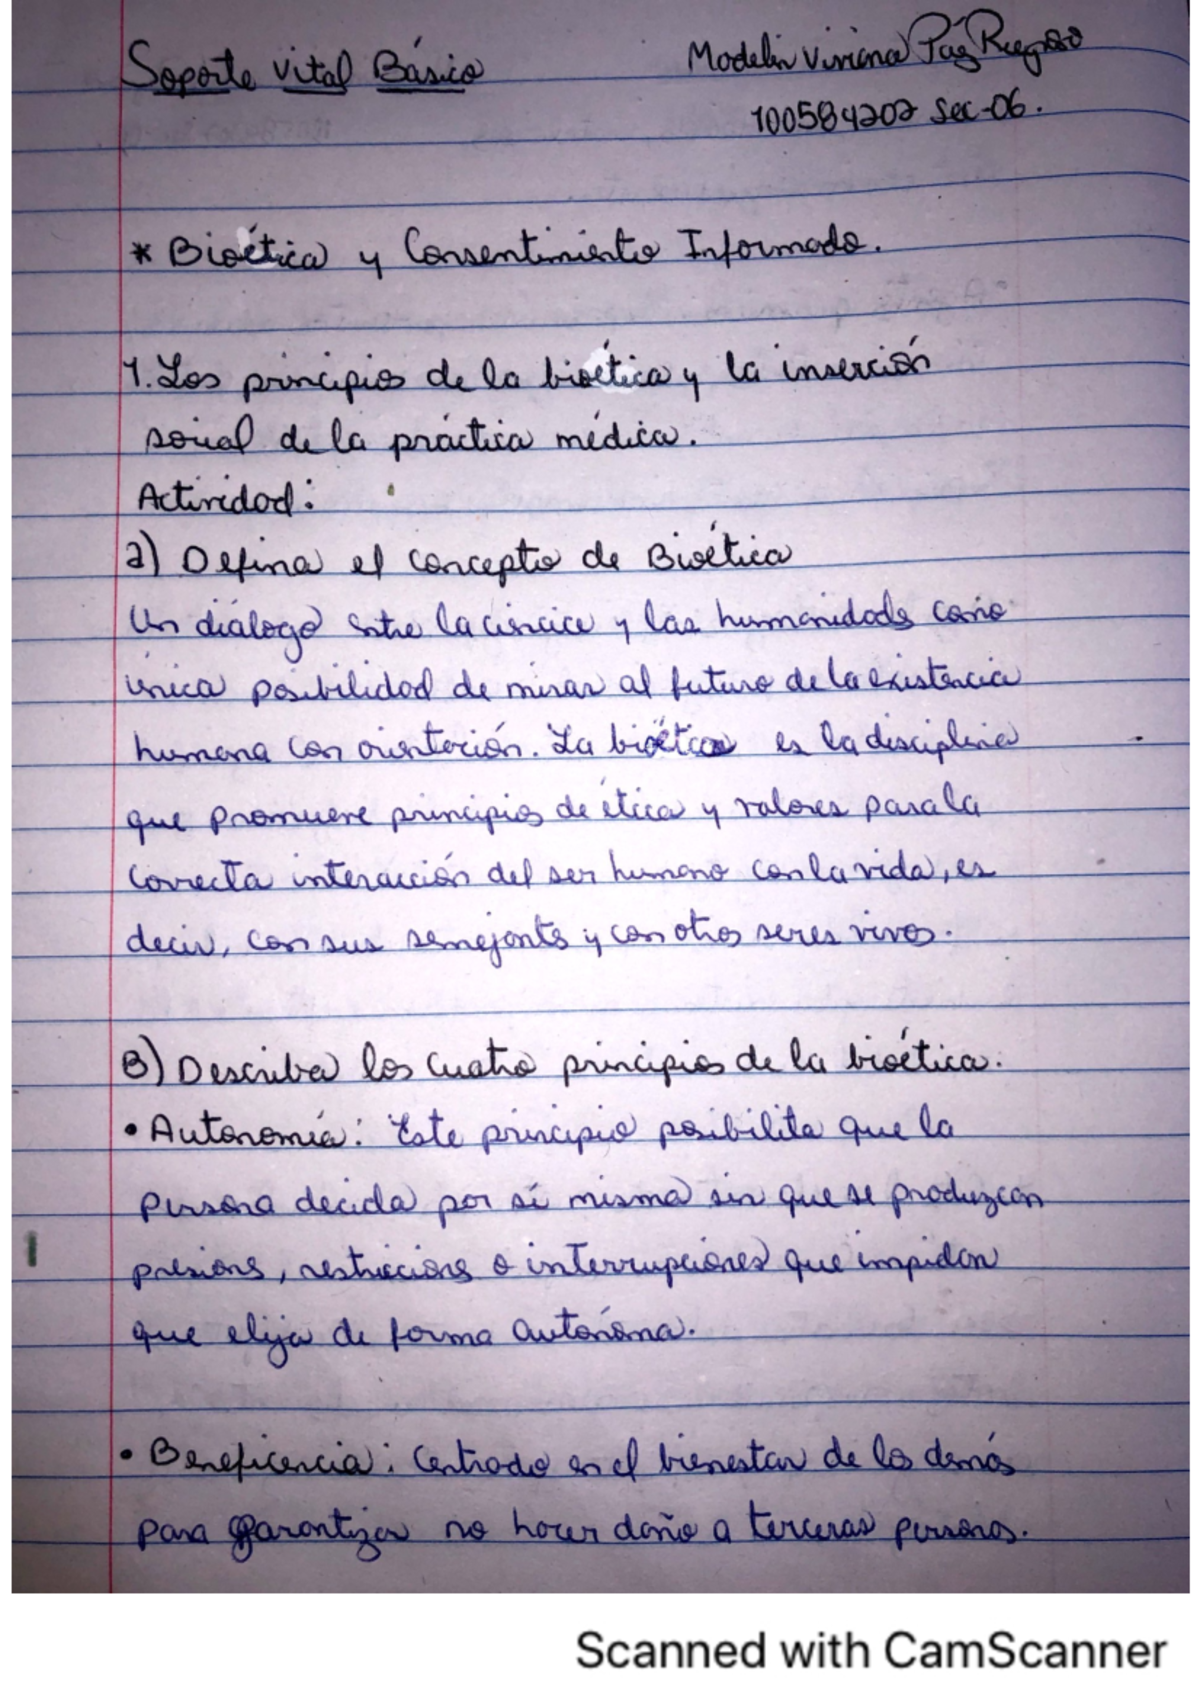 Soporte Vital Básico
Modelin Viviana Páz
100584202 Sec-06.
* Bioética y Consentimiento Informado.
1. Los principios de la bioética y la inserción
social de la práctica médica.
Actividad:
a) Defina el concepto de Bioética
Un diálogo entre la ciencia y las humanidades como
única posibilidad de mirar al futuro de la existencia
humana con orientación. La bioética es la disciplina
que promueve principios de ética y valores para la
correcta interacción del ser humano con la vida, es
decir, con sus semejantes y con otros seres vivos.
B) Describa los cuatro principios de la bioética.
• Autonomía: Este principio posibilita que la
persona decida por sí misma sin que se produzcan
presiones, restricciones o interrupciones que impidan
que elija de forma autónoma.
• Beneficencia: Centrado en el bienestar de los demás
para garantizar no hacer daño a terceras personas.
Scanned with CamScanner